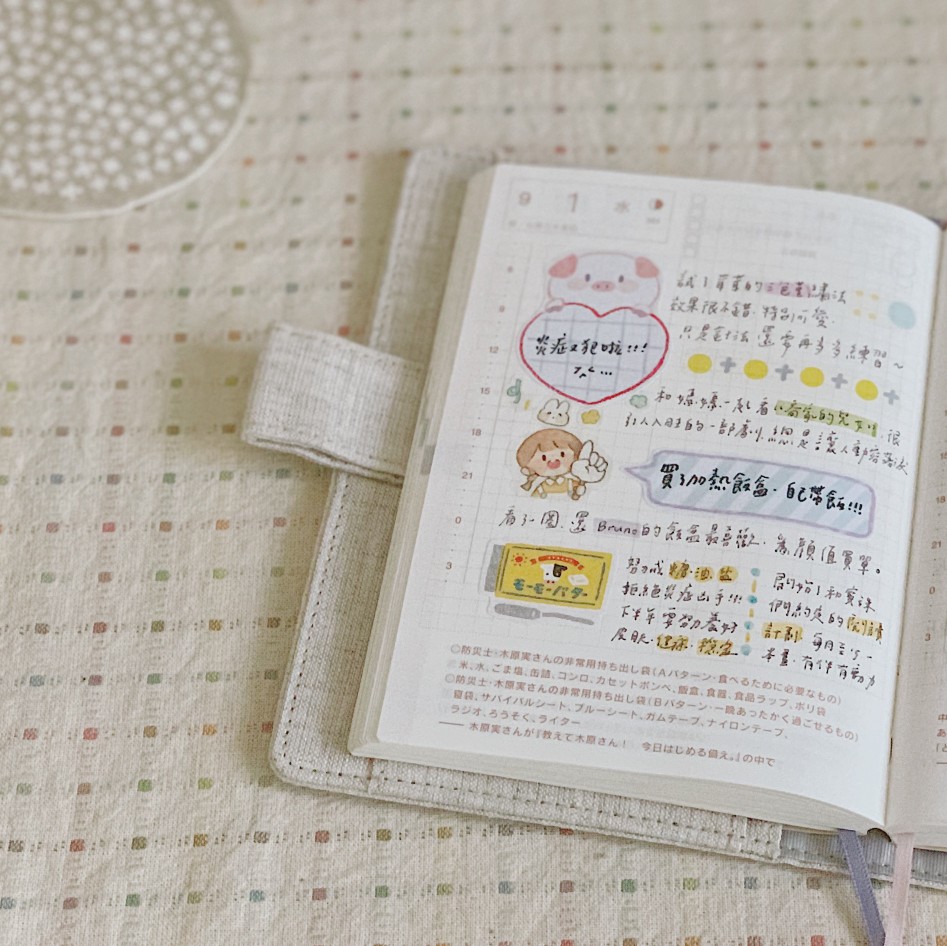 9 1 水
9
試了苺苺的三色筆畫法
效果很不錯．特別可愛．
只是畫法還要再多多練習～
炎症又犯啦!!!
12
15
和媽媽一起看《喬家的兒女》很
引人入勝的一部劇．總是讓人動容落淚
18
買了加熱飯盒．自己帶飯!!!
21
看了一圈．還Bruno的飯盒最喜歡．為顏值買單。
0
努力戒糖．油．鹽
拒絕炎症出手!!!
下半年要努力養好
皮肤．
モーモーバター
3
開始了和寶珠
們約定的閱讀
計劃．每月至少一
本書．有伴有動力
◎防災士・木原実さんの非常用持ち出し袋(Aパターン・食べるために必要なもの)
米、水、ごま塩、缶詰、コンロ、カセットボンベ、飯盒、食器、食品ラップ、ポリ袋
◎防災士・木原実さんの非常用持ち出し袋(Bパターン・一晩あったかく過ごせるもの)
寝袋、サバイバルシート、ブルーシート、ガムテープ、ナイロンテープ、
ラジオ、ろうそく、ライター
―― 木原実さんが『教えて木原さん！ 今日はじめる備え。』の中で